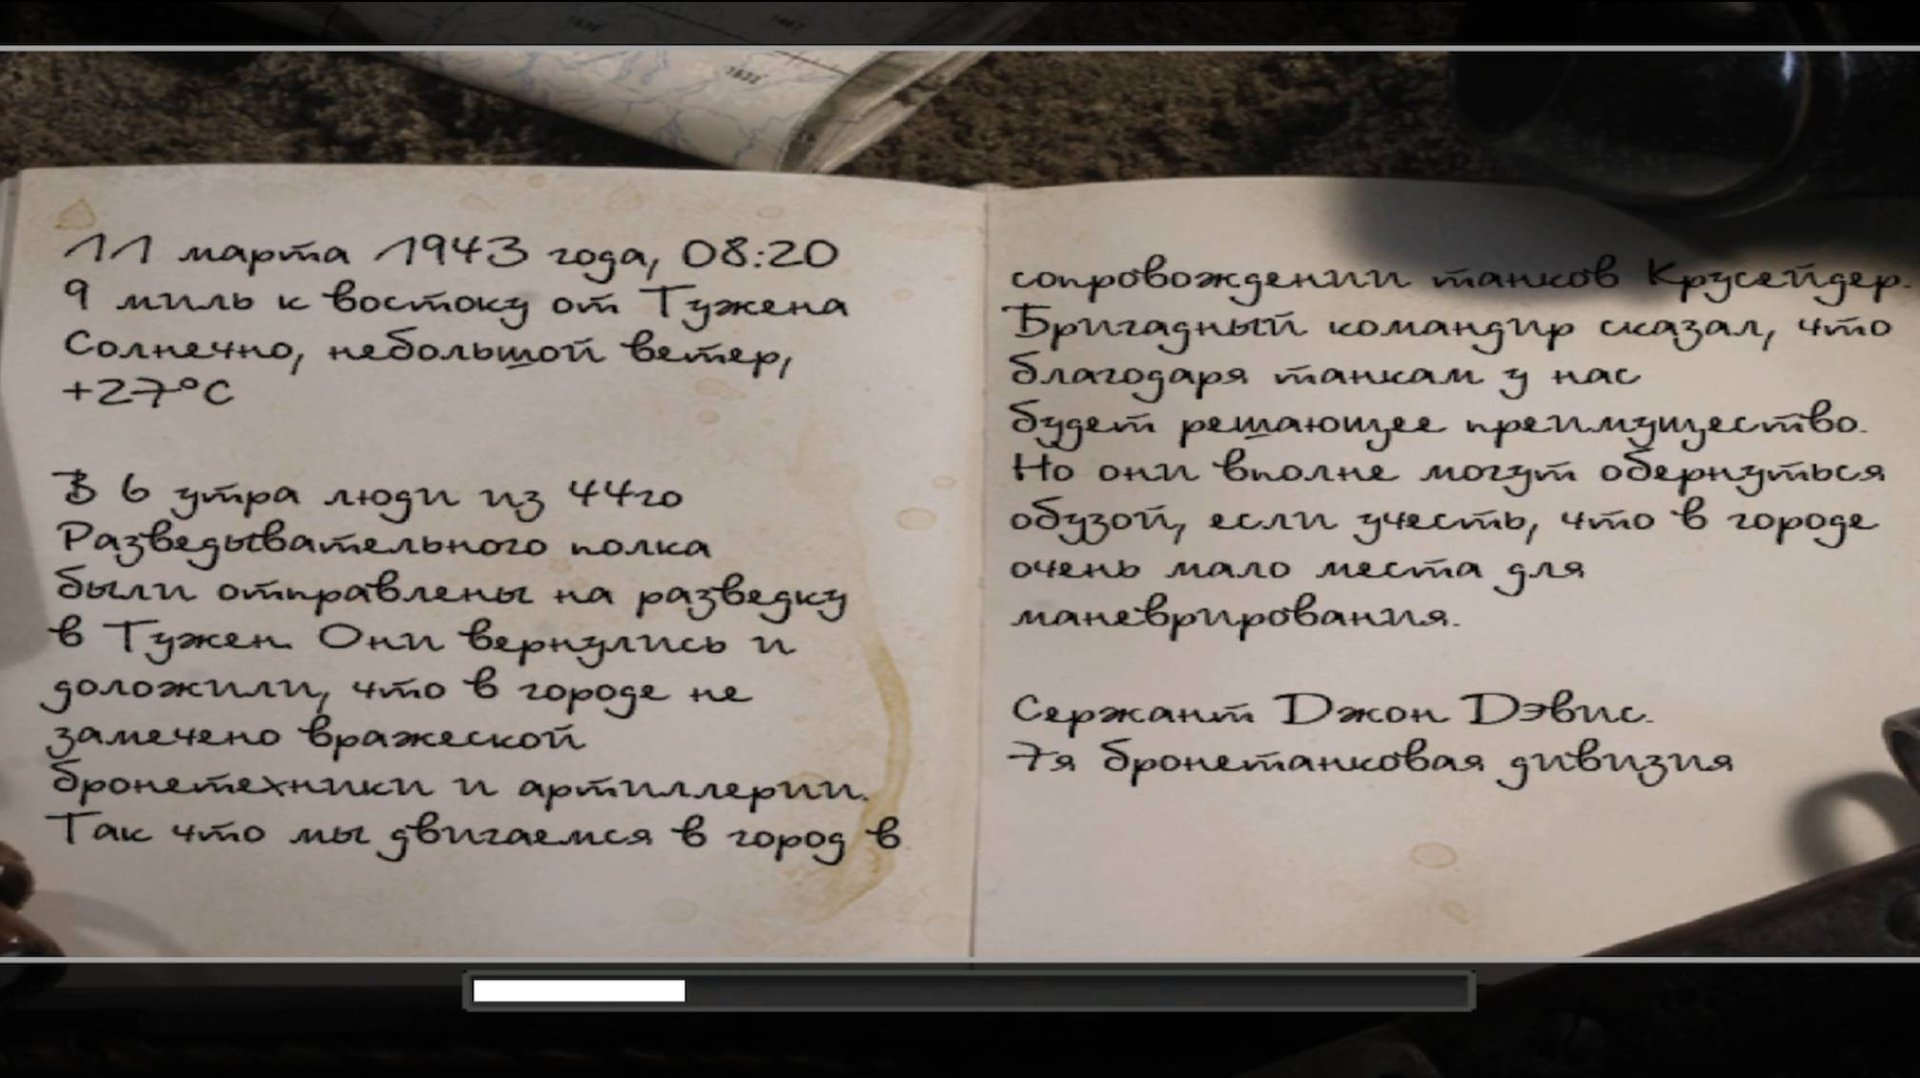 11 марта 1943 года, 08:20
9 миль к востоку от Тужена
Солнечно, небольшой ветер,
+27°C
В 6 утра люди из 44го
Разведывательного полка
были отправлены на разведку
в Тужен. Они вернулись и
доложили, что в городе не
замечено вражеской
бронетехники и артиллерии.
Так что мы двигаемся в город в
сопровождении танков Крусейдер.
Бригадный командир сказал, что
благодаря танкам у нас
будет решающее преимущество.
Но они вполне могут обернуться
обузой, если учесть, что в городе
очень мало места для
маневрирования.
Сержант Джон Дэвис.
7я бронетанковая дивизия